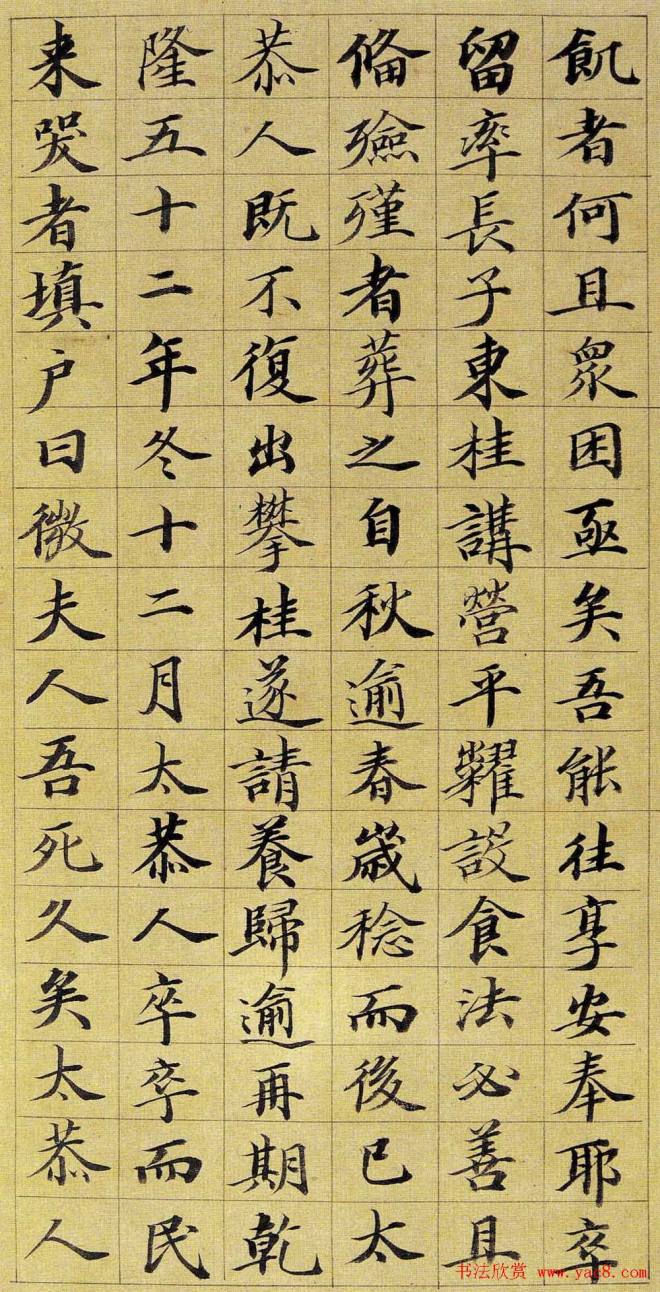 飢者何且眾困亟矣吾能往享安奉耶卒
留率長子東桂講營平糶設食法必善且
俻殮殣者葬之自秋逾春歲稔而後已太
恭人既不復出攀桂遂請養歸逾再期乾
隆五十二年冬十二月太恭人卒卒而民
来哭者填户曰微夫人吾死久矣太恭人
书法欣赏 www.yac8.com